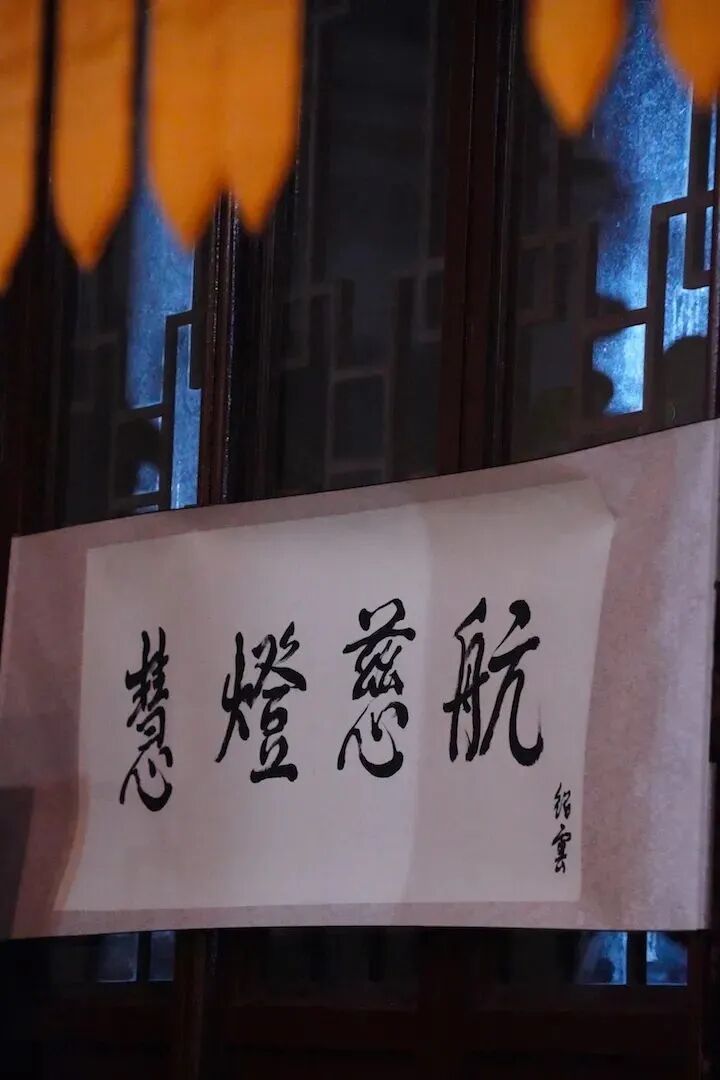 慧燈慈航
紹雲